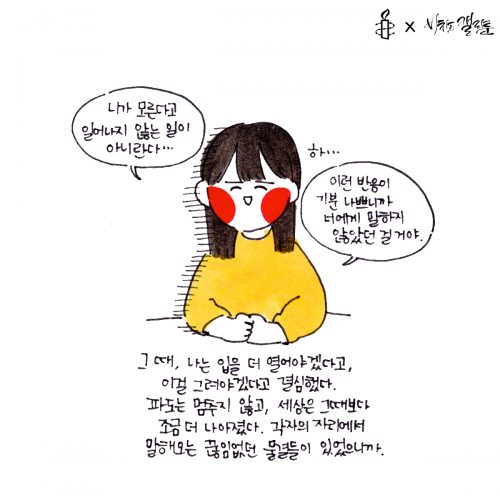 ×
니가 모른다고
일어나지 않는 일이
아니란다…
하…
이런 반응이
기분 나쁘니까
너에게 말하지
않았던 걸 거야.
그 때, 나는 입을 더 열어야겠다고,
이걸 그려야겠다고 결심했다.
파도는 멈추지 않고, 세상은 그때보다
조금 더 나아졌다. 각자의 자리에서
말해오는 끊임없던 물결들이 있었으니까.